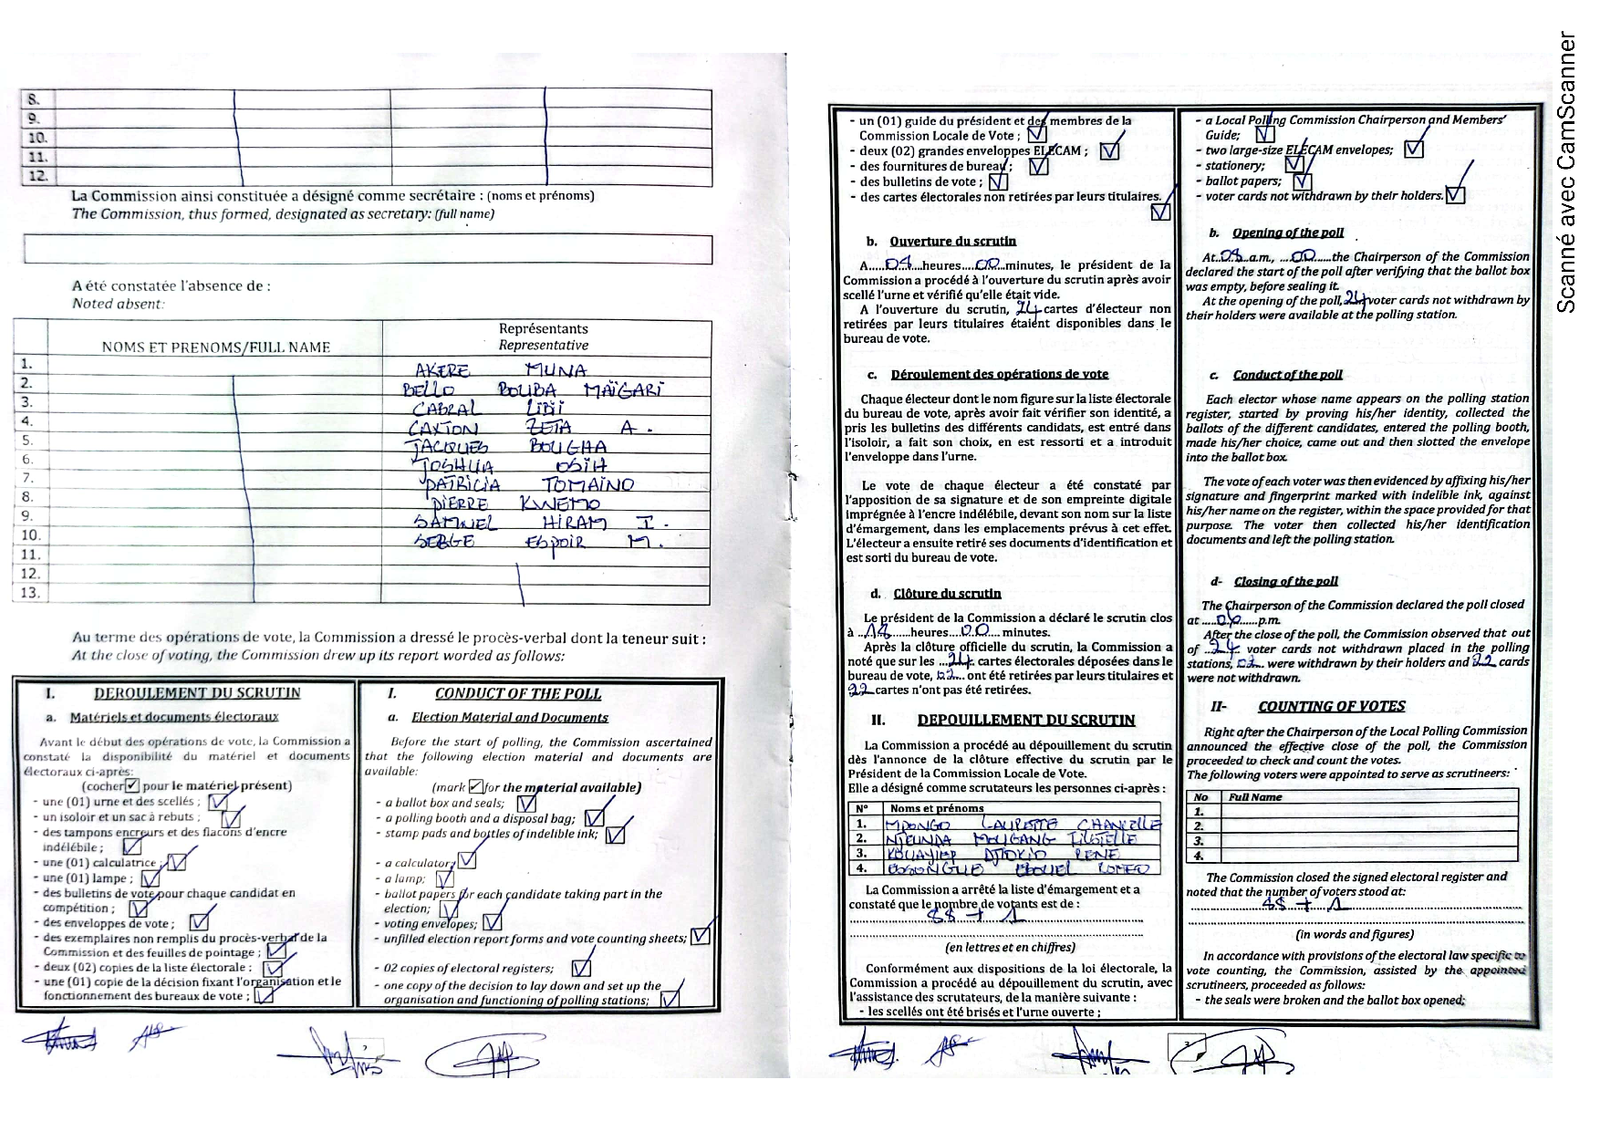 8.
9.
10.
11.
12.
La Commission ainsi constituée a désigné comme secrétaire : (noms et prénoms)
The Commission, thus formed, designated as secretary: (full name)
A été constatée l'absence de :
Noted absent:
NOMS ET PRENOMS/FULL NAME
Représentants
Representative
1. AKERE MUNA
2. BELLO BOUBA MAÏGARI
3. CABRAL LIBI
4. CAXTON ZETA A.
5. JACQUES BOUGHA
6. JOSHUA OSIH
7. PATRICIA TOMAINO
8. PIERRE KWEMO
9. SAMUEL HIRAM I.
10. SERGE ESPOIR M.
11.
12.
13.
Au terme des opérations de vote, la Commission a dressé le procès-verbal dont la teneur suit :
At the close of voting, the Commission drew up its report worded as follows:
I. DEROULEMENT DU SCRUTIN
a. Matériels et documents électoraux
Avant le début des opérations de vote, la Commission a
constaté la disponibilité du matériel et documents
électoraux ci-après:
(cocher ✓ pour le matériel présent)
- une (01) urne et des scellés ;
- un isoloir et un sac à rebuts ;
- des tampons encreurs et des flacons d'encre
indélébile ;
- une (01) calculatrice ;
- une (01) lampe ;
- des bulletins de vote pour chaque candidat en
compétition ;
- des enveloppes de vote ;
- des exemplaires non remplis du procès-verbal de la
Commission et des feuilles de pointage ;
- deux (02) copies de la liste électorale :
- une (01) copie de la décision fixant l'organisation et le
fonctionnement des bureaux de vote ;
I. CONDUCT OF THE POLL
a. Election Material and Documents
Before the start of polling, the Commission ascertained
that the following election material and documents are
available:
(mark ✓ for the material available)
- a ballot box and seals;
- a polling booth and a disposal bag;
- stamp pads and bottles of indelible ink;
- a calculator;
- a lamp;
- ballot papers for each candidate taking part in the
election;
- voting envelopes;
- unfilled election report forms and vote counting sheets;
- 02 copies of electoral registers;
- one copy of the decision to lay down and set up the
organisation and functioning of polling stations;
- un (01) guide du président et des membres de la
Commission Locale de Vote ;
- deux (02) grandes enveloppes ELECAM ;
- des fournitures de bureau ;
- des bulletins de vote ;
- des cartes électorales non retirées par leurs titulaires.
b. Ouverture du scrutin
A.....08....heures....00...minutes, le président de la
Commission a procédé à l'ouverture du scrutin après avoir
scellé l'urne et vérifié qu'elle était vide.
A l'ouverture du scrutin, 24 cartes d'électeur non
retirées par leurs titulaires étaient disponibles dans le
bureau de vote.
c. Déroulement des opérations de vote
Chaque électeur dont le nom figure sur la liste électorale
du bureau de vote, après avoir fait vérifier son identité, a
pris les bulletins des différents candidats, est entré dans
l'isoloir, a fait son choix, en est ressorti et a introduit
l'enveloppe dans l'urne.
Le vote de chaque électeur a été constaté par
l'apposition de sa signature et de son empreinte digitale
imprégnée à l'encre indélébile, devant son nom sur la liste
d'émargement, dans les emplacements prévus à cet effet.
L'électeur a ensuite retiré ses documents d'identification et
est sorti du bureau de vote.
d. Clôture du scrutin
Le président de la Commission a déclaré le scrutin clos
à ..18......heures....00.... minutes.
Après la clôture officielle du scrutin, la Commission a
noté que sur les ...24.. cartes électorales déposées dans le
bureau de vote, 02... ont été retirées par leurs titulaires et
22 cartes n'ont pas été retirées.
II. DEPOUILLEMENT DU SCRUTIN
La Commission a procédé au dépouillement du scrutin
dès l'annonce de la clôture effective du scrutin par le
Président de la Commission Locale de Vote.
Elle a désigné comme scrutateurs les personnes ci-après :
N° Noms et prénoms
1.
2.
3. RENE
4. ROMEO
La Commission a arrêté la liste d'émargement et a
constaté que le nombre de votants est de :
88 + 1
(en lettres et en chiffres)
Conformément aux dispositions de la loi électorale, la
Commission a procédé au dépouillement du scrutin, avec
l'assistance des scrutateurs, de la manière suivante :
- les scellés ont été brisés et l'urne ouverte ;
- a Local Polling Commission Chairperson and Members'
Guide;
- two large-size ELECAM envelopes;
- stationery;
- ballot papers;
- voter cards not withdrawn by their holders.
b. Opening of the poll
At..08..a.m., ...00.....the Chairperson of the Commission
declared the start of the poll after verifying that the ballot box
was empty, before sealing it.
At the opening of the poll, 24 voter cards not withdrawn by
their holders were available at the polling station.
c. Conduct of the poll
Each elector whose name appears on the polling station
register, started by proving his/her identity, collected the
ballots of the different candidates, entered the polling booth,
made his/her choice, came out and then slotted the envelope
into the ballot box.
The vote of each voter was then evidenced by affixing his/her
signature and fingerprint marked with indelible ink, against
his/her name on the register, within the space provided for that
purpose. The voter then collected his/her identification
documents and left the polling station.
d- Closing of the poll
The Chairperson of the Commission declared the poll closed
at .....06.....p.m.
After the close of the poll, the Commission observed that out
of ..24.. voter cards not withdrawn placed in the polling
stations, 02... were withdrawn by their holders and 22 cards
were not withdrawn.
II- COUNTING OF VOTES
Right after the Chairperson of the Local Polling Commission
announced the effective close of the poll, the Commission
proceeded to check and count the votes.
The following voters were appointed to serve as scrutineers:
No Full Name
1.
2.
3.
4.
The Commission closed the signed electoral register and
noted that the number of voters stood at:
88 + 1
(in words and figures)
In accordance with provisions of the electoral law specific to
vote counting, the Commission, assisted by the appointed
scrutineers, proceeded as follows:
- the seals were broken and the ballot box opened;
Scanné avec CamScanner